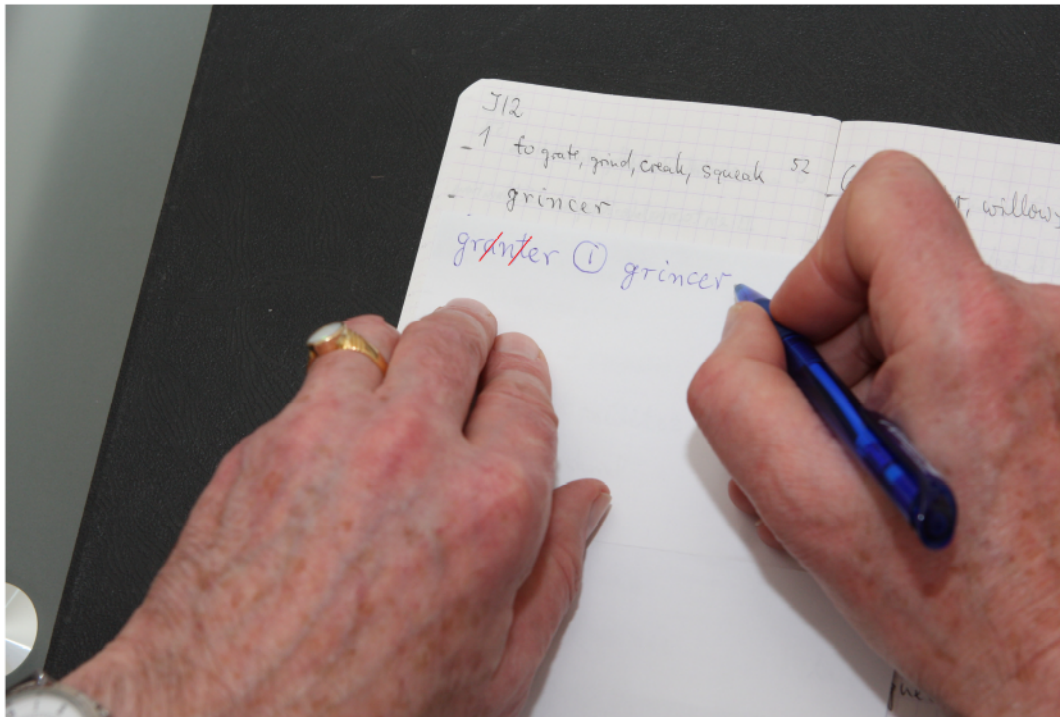 J12
- 1 to grate, grind, creak, squeak 52
- grincer
granter ① grincer
willows